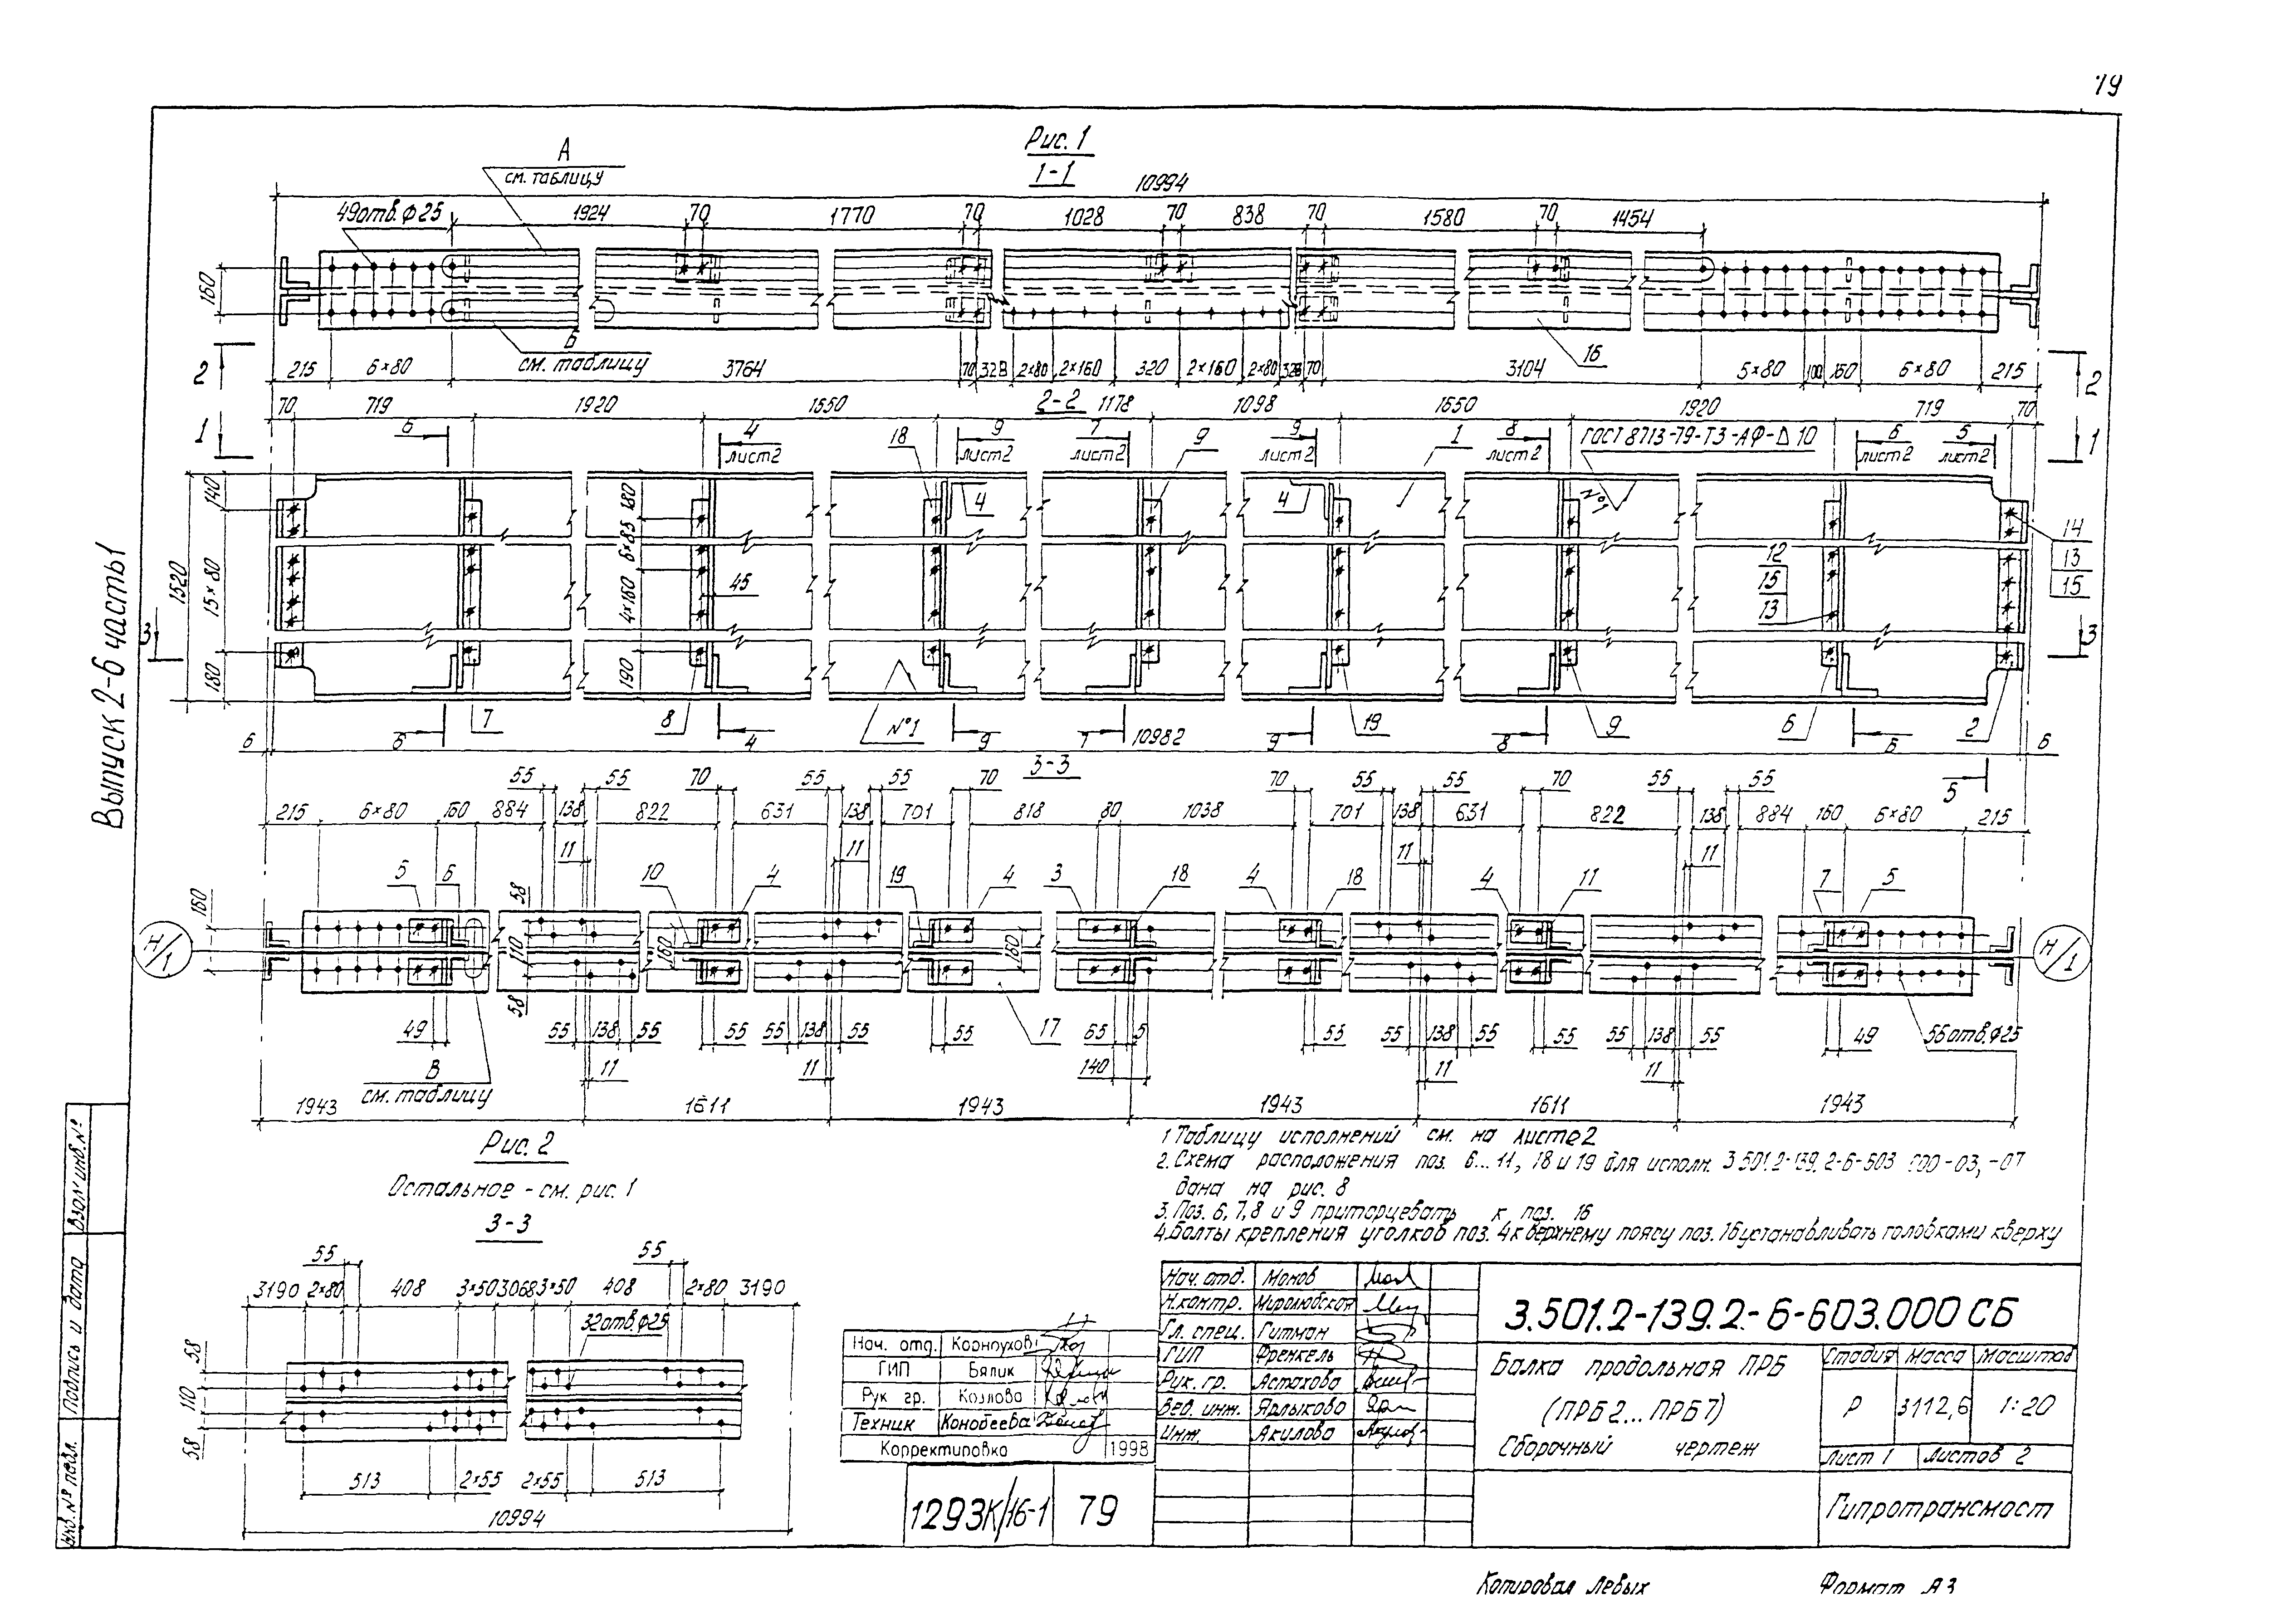 79
Выпуск 2-6 часть 1
Рис. 1
1-1
А
см. таблицу
10994
49отв. ф25
1924
70
1770
70
1028
70
838
70
1580
70
1454
160
Б
см. таблицу
16
215
6×80
3764
70
328
2×80
2×160
320
2×160
2×80
328
70
3104
5×80
100
160
6×80
215
2
2
1
1
2-2
70
719
1920
1650
1178
1098
1650
1920
719
70
6
4
лист2
18
9
лист2
7
лист2
9
9
лист2
1
8
лист2
ГОСТ 8713-79-Т3-АФ-Δ10
6
лист2
5
лист2
140
15×80
180
1520
180
6×85
4×160
190
45
4
4
№1
12
15
13
14
13
15
3
3
6
7
8
4
№1
9
7
9
19
8
9
6
6
2
5
6
10982
6
3-3
55
55
70
55
55
70
70
55
55
70
55
55
215
6×80
160
884
138
822
631
138
701
818
80
1038
701
138
631
822
138
884
160
6×80
215
11
11
11
11
5
6
58
10
4
19
4
3
18
4
18
4
11
7
5
160
Н/1
110
160
160
Н/1
58
49
55
138
55
55
55
138
55
55
17
65
5
55
55
138
55
55
55
138
55
49
56отв. ф25
11
11
140
11
11
В
см. таблицу
1943
1611
1943
1943
1611
1943
Рис. 2
Остальное - см. рис. 1
3-3
55
55
3190
2×80
408
3×50
3068
3×50
408
2×80
3190
32отв. ф25
58
110
58
513
2×55
2×55
513
10994
1 Таблицу исполнений см. на листе2
2. Схема расположения поз. 6...11, 18 и 19 для исполн. 3.501.2-139.2-6-603 000-03,-07
дана на рис. 8
3. Поз. 6, 7, 8 и 9 приторцевать к поз. 16
4. Болты крепления уголков поз. 4 к верхнему поясу поз. 16 устанавливать головками кверху
Нач. отд. Монов
Н.контр. Миролюбская
Гл. спец. Гитман
ГИП Френкель
Рук. гр. Астахова
Вед. инж. Ярлыкова
Инж. Акулова
3.501.2-139.2-6-603.000 СБ
Балка продольная ПРБ
(ПРБ2...ПРБ7)
Сборочный чертеж
Стадия Масса Масштаб
Р 3112,6 1:20
Лист 1 Листов 2
Гипротрансмост
Нач. отд. Корноухов
ГИП Бялик
Рук гр. Козлова
Техник Конобеева
Корректировка 1998
1293К/16-1 79
Взам инв.№
Подпись и дата
Инв.№ подл.
Копировал Левых
Формат А3